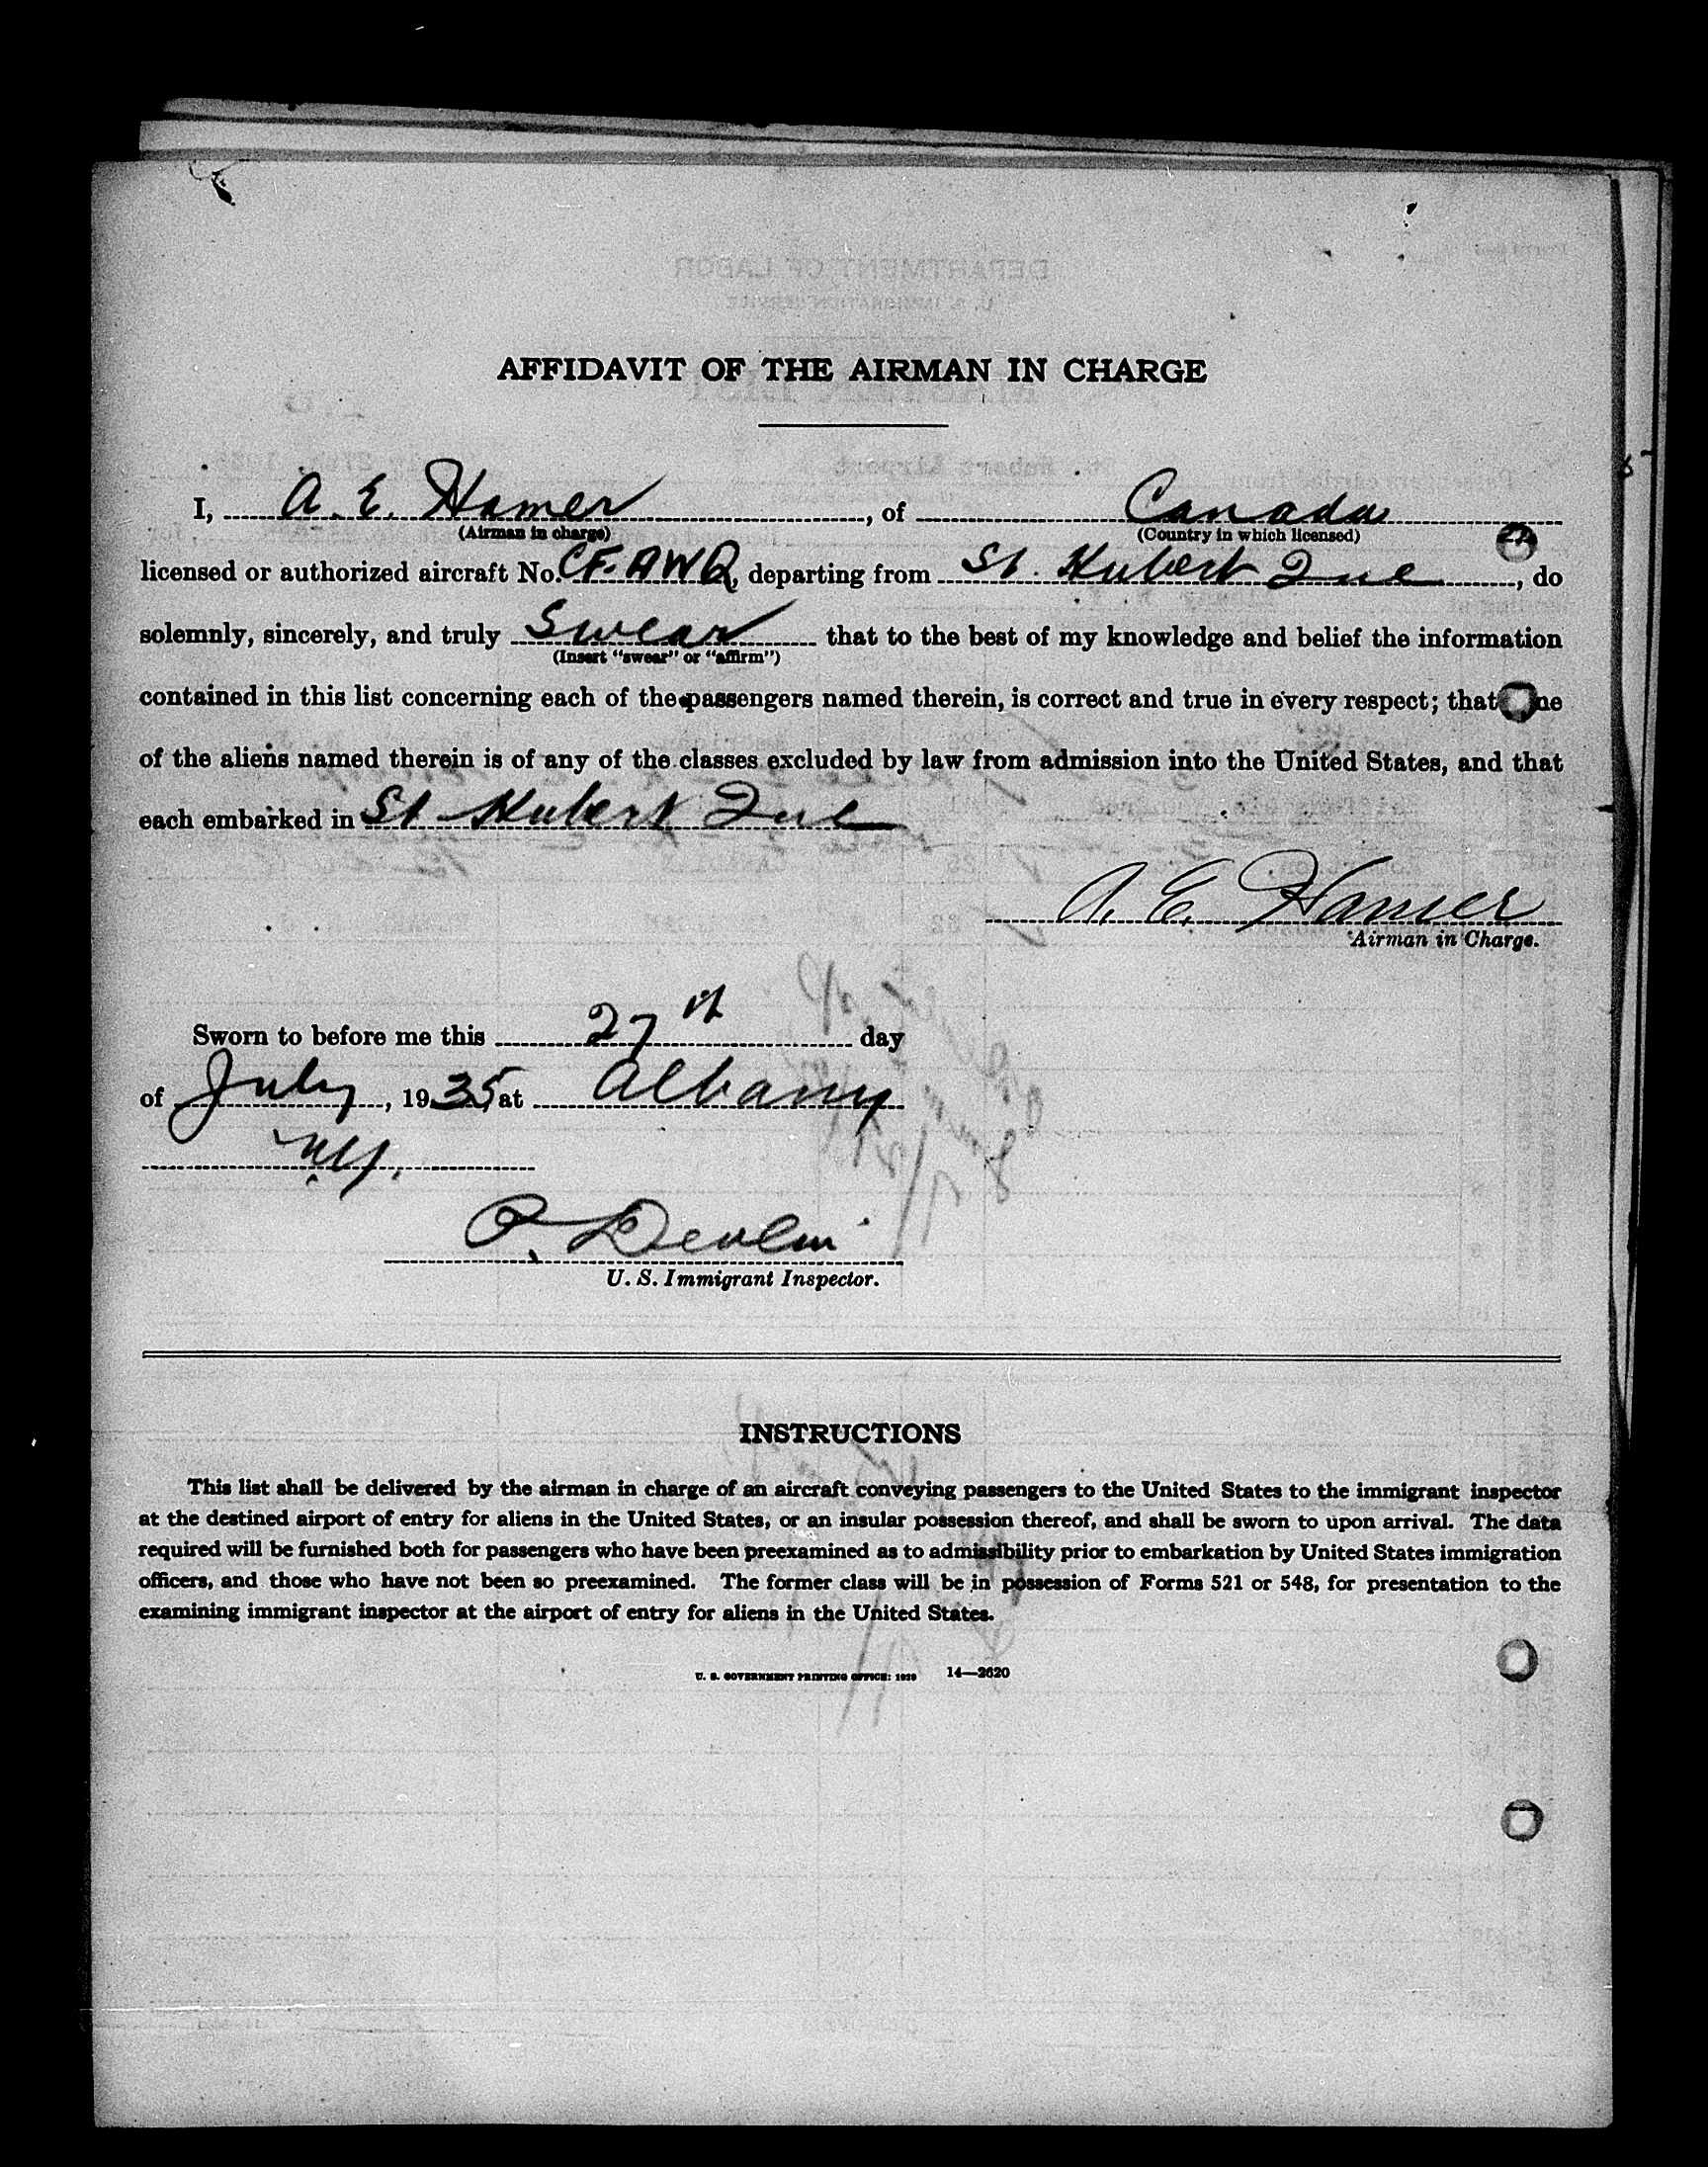 AFFIDAVIT OF THE AIRMAN IN CHARGE
I, A. E. Hamer, of Canada
(Airman in charge) (Country in which licensed)
licensed or authorized aircraft No. CF-AWR, departing from St. Hubert Que, do
solemnly, sincerely, and truly Swear that to the best of my knowledge and belief the information
(Insert "swear" or "affirm")
contained in this list concerning each of the passengers named therein, is correct and true in every respect; that
of the aliens named therein is of any of the classes excluded by law from admission into the United States, and that
each embarked in St Hubert Que
A. E. Hamer
Airman in Charge.
Sworn to before me this 27th day
of July, 1935 at Albany
N.Y.
P. Devlin
U. S. Immigrant Inspector.
INSTRUCTIONS
This list shall be delivered by the airman in charge of an aircraft conveying passengers to the United States to the immigrant inspector
at the destined airport of entry for aliens in the United States, or an insular possession thereof, and shall be sworn to upon arrival. The data
required will be furnished both for passengers who have been preexamined as to admissibility prior to embarkation by United States immigration
officers, and those who have not been so preexamined. The former class will be in possession of Forms 521 or 548, for presentation to the
examining immigrant inspector at the airport of entry for aliens in the United States.
U. S. GOVERNMENT PRINTING OFFICE: 1929 14—2620